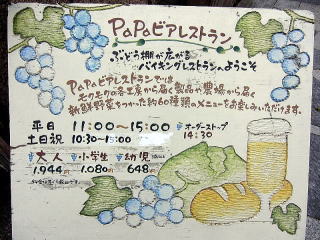 PaPaビアレストラン
ぶどう棚が広がる
バイキングレストランへようこそ
PaPaビアレストランでは
モクモクの各工房から届く製品や農場から届く
新鮮野菜をつかった約60種類のメニューをお楽しみいただけます。
平日 11:00〜15:00 オーダーストップ
土日祝 10:30〜15:00 14:30
大人 小学生 幼児
1,944円 1,080円 648円